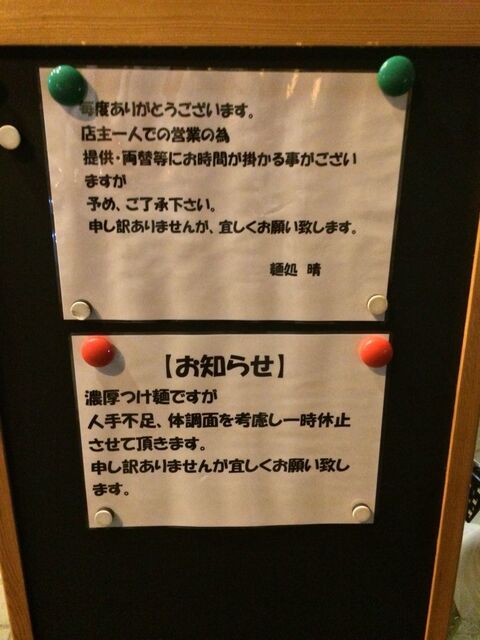 毎度ありがとうございます。
店主一人での営業の為
提供・両替等にお時間が掛かる事がござい
ますが
予め、ご了承下さい。
申し訳ありませんが、宜しくお願い致します。
麺処 晴
【お知らせ】
濃厚つけ麺ですが
人手不足、体調面を考慮し一時休止
させて頂きます。
申し訳ありませんが宜しくお願い致し
ます。